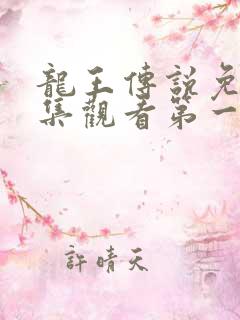 龍王傳說免
集觀看第一
許晴天